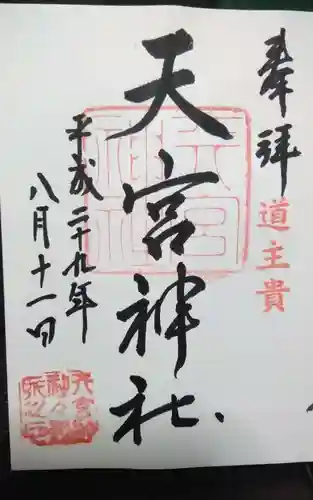 奉拝
道主貴
天宮神社
平成二十九年
八月十一日
天宮神社